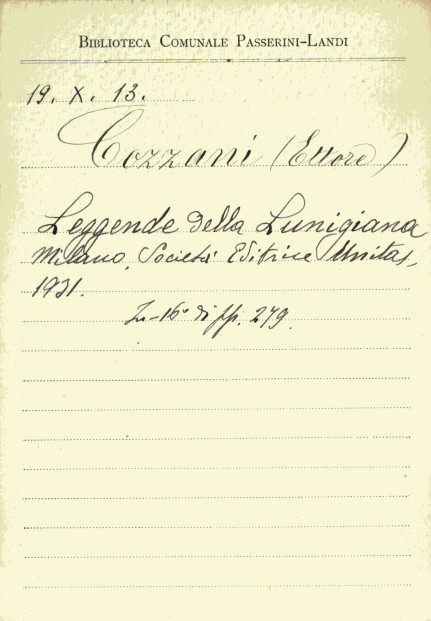 BIBLIOTECA COMUNALE PASSERINI-LANDI
19. X. 13.
Cozzani (Ettore)
Leggende della Lunigiana
Milano, Società Editrice Unitas,
1931.
In-16° di pp. 279.